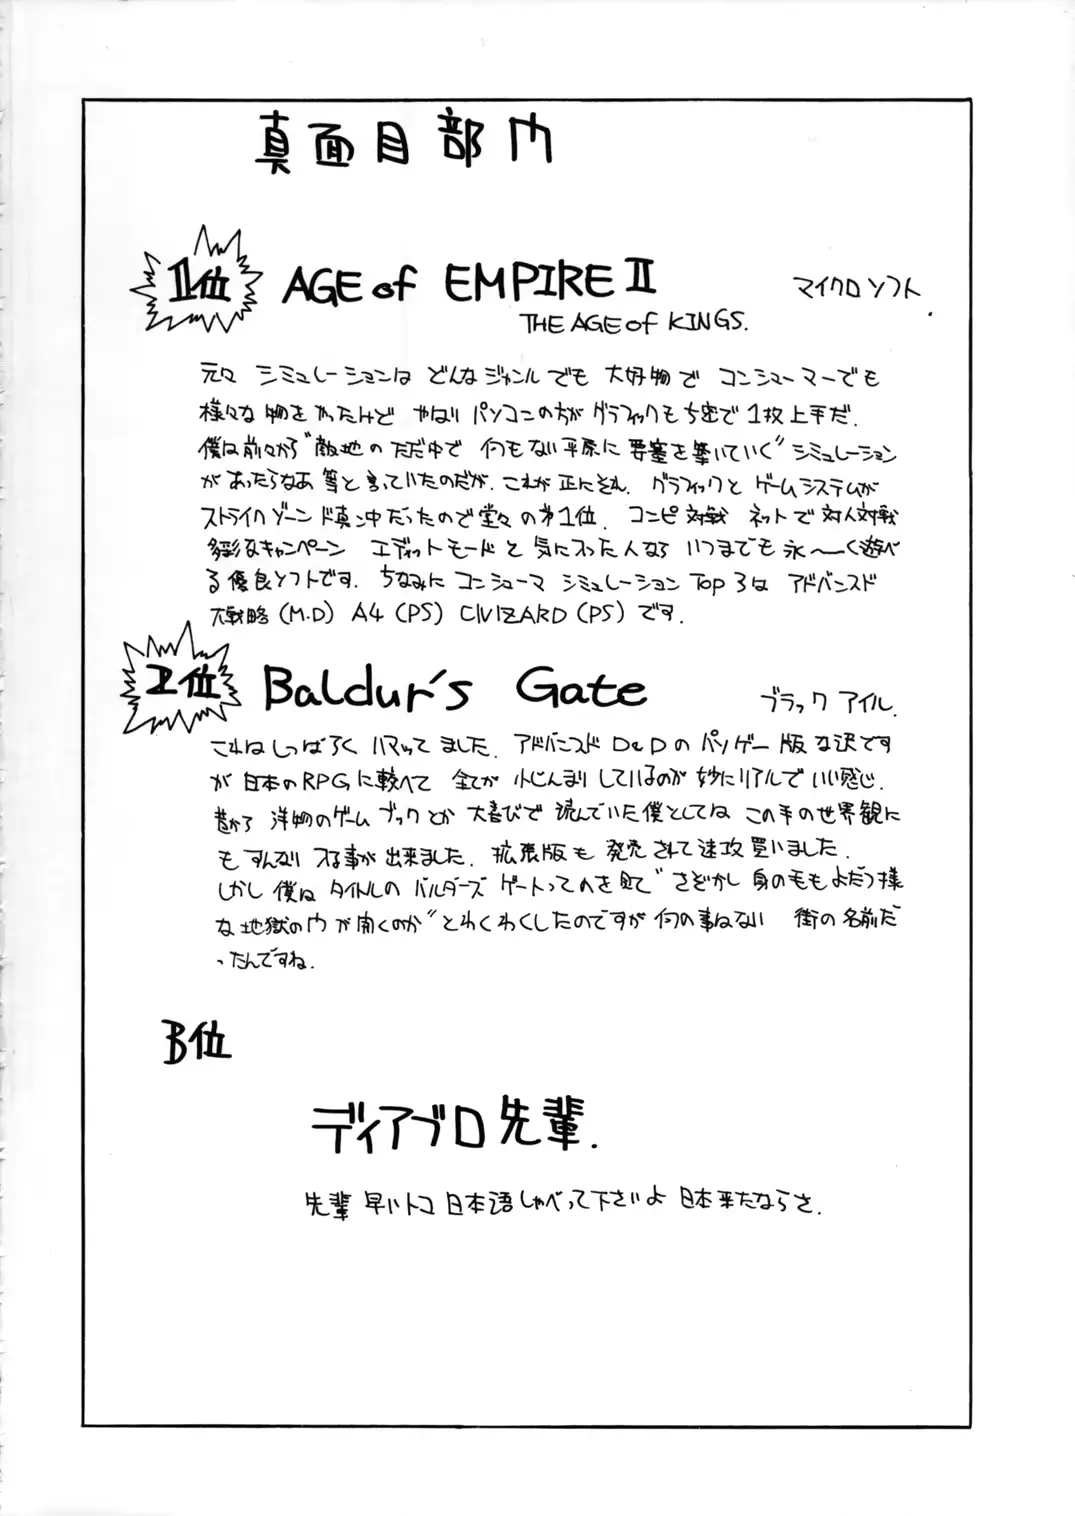 真面目部門
1位 AGE of EMPIRE II マイクロソフト.
THE AGE of KINGS.
元々 シミュレーションは どんなジャンルでも 大好物で コンシューマーでも
様々な物をやったけど やはり パソコンの方が グラフィックも ち密で 1枚上手だ.
僕は前々から"敵地の ただ中で 何もない平原に 要塞を築いていく"シミュレーション
があったらなあ 等と言っていたのだが. これが 正にそれ. グラフィックと ゲームシステムが
ストライクゾーン ド真ン中だったので 堂々の第1位. コンピ対戦 ネットで 対人対戦
多彩なキャンペーン エディットモードと 気に入った人なら いつまでも 永〜く遊べ
る優良ソフトです. ちなみに コンシューマ シミュレーション TOP 3は アドバンスド
大戦略(M.D) A4 (PS) CIVIZARD (PS) です.
2位 Baldur's Gate ブラック アイル.
これは しっぱろく ハマッてました. アドバンスド D&Dの パソゲー 版 な訳です
が 日本のRPGに較べて 全てが 小じんまり しているのが 妙にリアルで いい感じ.
昔から 洋物のゲーム ブックとか 大喜びで 読んでいた僕としてね この手の世界観に
も すんなり 入る事が 出来ました. 拡張版も 発売されて速攻 買いました.
しかし 僕は タイトルの バルダーズ ゲートってのを見て"さぞかし 身の毛もよだつ様
な 地獄の門が 開くのか"とわくわくしたのですが 何の事ねない 街の名前だ
ったんですね.
3位
ディアブロ先輩.
先輩 早いトコ 日本語しゃべって下さいよ 日本来たならさ.